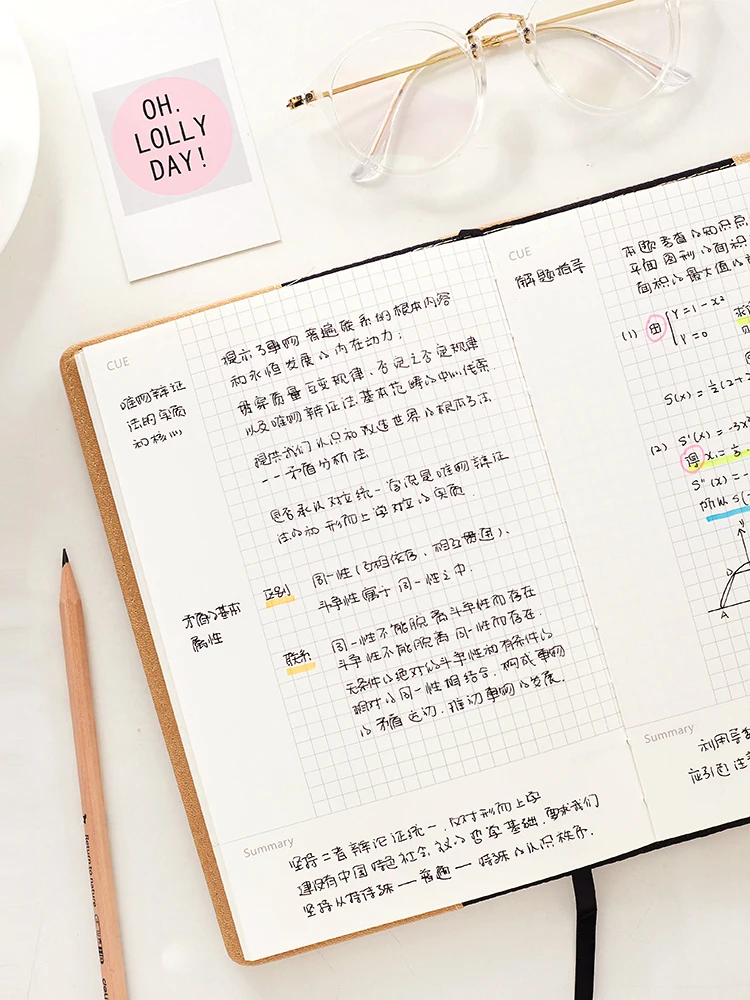 OH.
LOLLY
DAY!
CUE
唯物辩证
法的实质
和核心
揭示了事物普遍联系的根本内容
和永恒发展的内在动力;
贯穿质量互变规律、否定之否定规律
以及唯物辩证法基本范畴的中心线索.
提供我们认识和改造世界的根本方法
---矛盾分析法
是否承认对立统一学说是唯物辩证
法和形而上学对立的实质.
矛盾的基本
属性
区别
同一性(互相依存、相互贯通)、
斗争性寓于同一性之中.
联系
同一性不能脱离斗争性而存在
斗争性不能脱离同一性而存在.
无条件的绝对的斗争性和有条件的
相对的同一性相结合.构成事物
的矛盾运动.推动事物的发展.
Summary
坚持二者辩证统一.反对形而上学
建设有中国特色社会主义的哲学基础.要求我们
坚持从特殊—普遍—特殊的认识秩序.
CUE
解题指导
本题考查的知识点
平面图形的面积
面积的最大值的
(1) 由 Y=1-x²
Y=0
S(x)=½(2+2
(2) S'(x)=-3x²
得 x₁=⅓
S"(x)=-
所以S(
A
Summary
利用导数
应引起注
Return to nature
deli